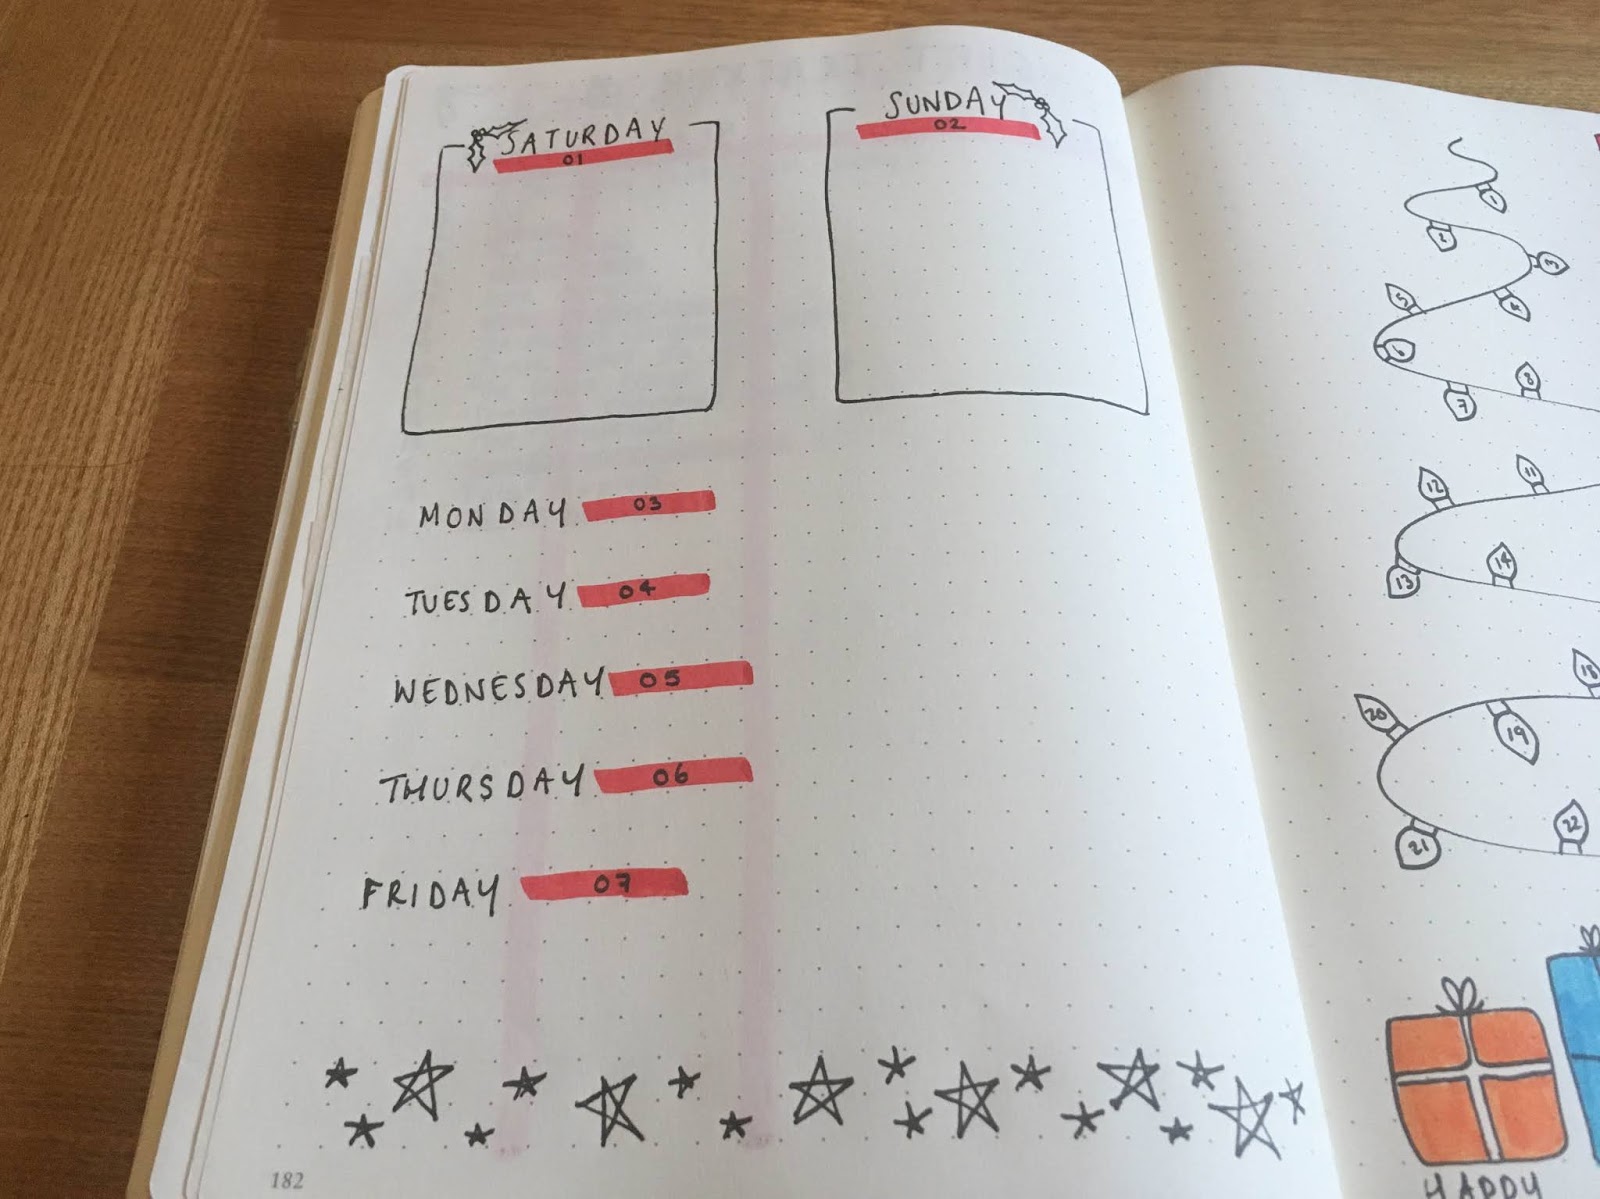 SATURDAY
01
SUNDAY
02
MONDAY 03
TUESDAY 04
WEDNESDAY 05
THURSDAY 06
FRIDAY 07
182
1
2
3
4
5
6
7
8
11
12
13
14
18
19
20
21
22
HAPPY